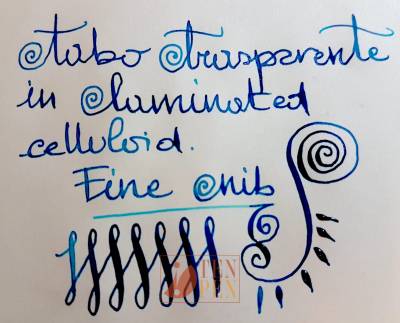 Tabo Trasparente
in laminated
celluloid.
Fine nib
TEN
PEN